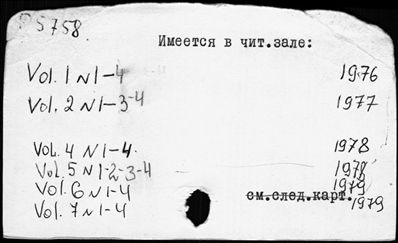 P 5758.
Имеется в чит.зале:
Vol. 1 N 1-4 1976
Vol. 2 N 1-3-4 1977
Vol. 4 N 1-4. 1978
Vol. 5 N 1-2-3-4 1978
Vol. 6 N 1-4 1979
см.след.карт.
Vol. 7 N 1-4 1979